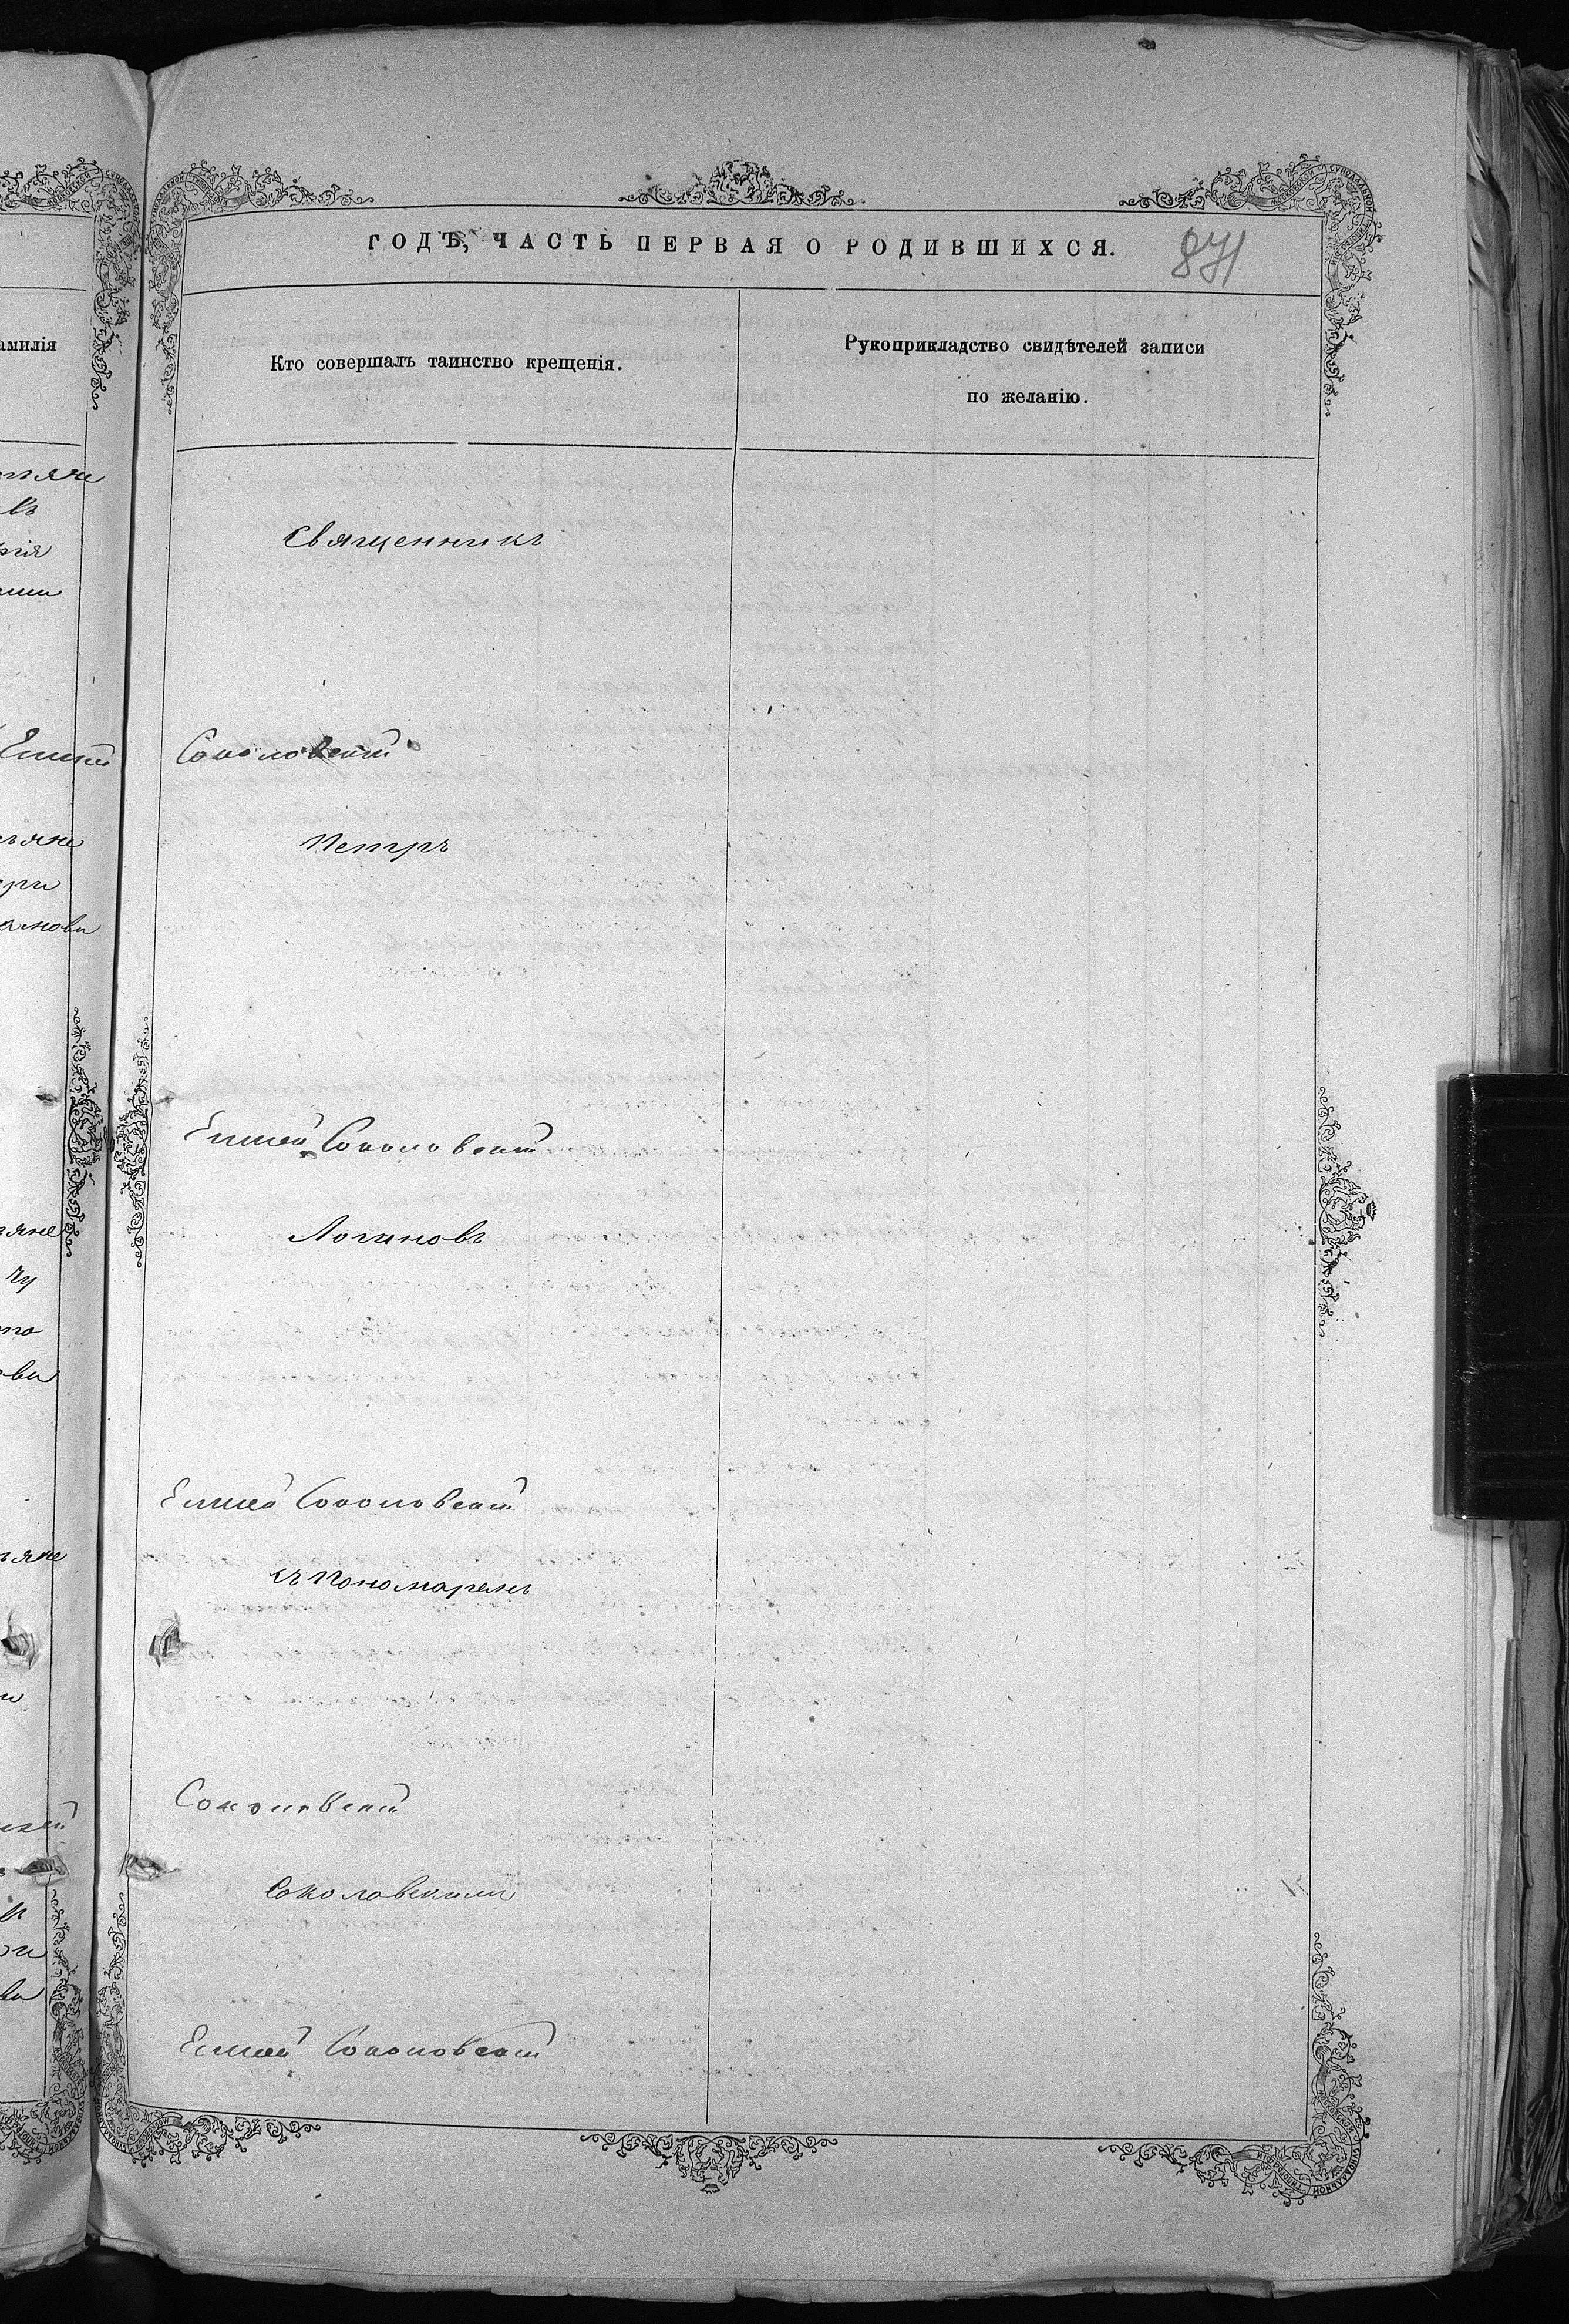 ГОДЪ, ЧАСТЬ ПЕРВАЯ О РОДИВШИХСЯ.
871
амилія
Кто совершалъ таинство крещенія.
Рукоприкладство свидѣтелей записи
по желанію.
Священникъ
Соколовскій
Петръ
Елисей Соколовскій
Логиновъ
Елисей Соколовскій
съ Пономаремъ
Соколовскій
Соколовскимъ
Елисей Соколовскій